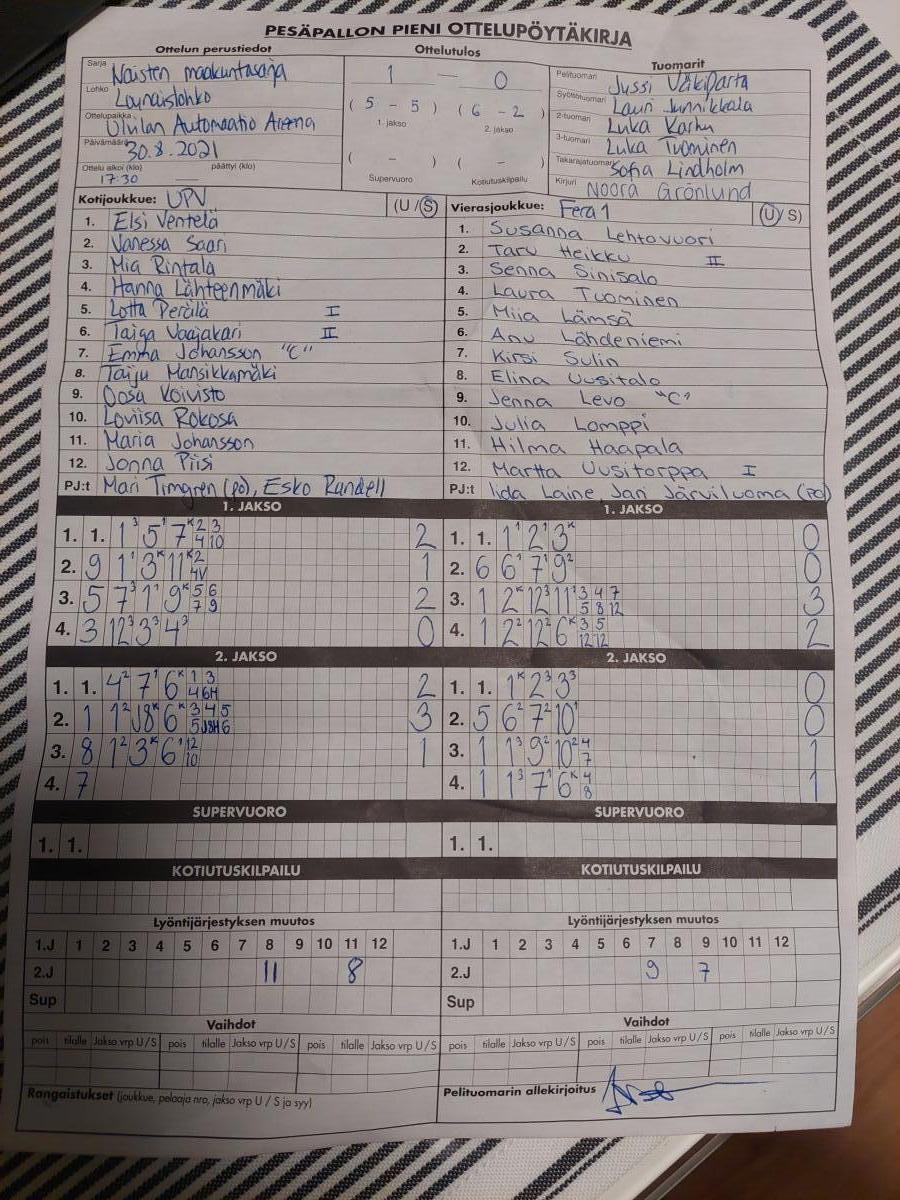 PESÄPALLON PIENI OTTELUPÖYTÄKIRJA
Ottelun perustiedot
Sarja Naisten maakuntasarja
Lohko Lounaislohko
Ottelupaikka Ulvilan Automaatio Areena
Päivämäärä 30.8.2021
Ottelu alkoi (klo) päättyi (klo)
17:30 —
Ottelutulos
1 — 0
( 5 - 5 ) ( 6 - 2 )
1. jakso 2. jakso
( - ) ( - )
Supervuoro Kotiutuskilpailu
Tuomarit
Pelituomari Jussi Väkiparta
Syöttötuomari Lauri Junnikkala
2-tuomari Luka Karhu
3-tuomari Luka Tuominen
Takarajatuomari Sofia Lindholm
Kirjuri Noora Grönlund
Kotijoukkue: UPV (U / S)
1. Elsi Ventelä
2. Vanessa Saari
3. Mia Rintala
4. Hanna Lähteenmäki
5. Lotta Perälä I
6. Taiga Vaajakari II
7. Emma Johansson "C"
8. Taiju Mansikkamäki
9. Oosa Koivisto
10. Loviisa Rokosa
11. Maria Johansson
12. Jonna Piisi
PJ:t Mari Timgren (po), Esko Randell
Vierasjoukkue: Fera 1 (U / S)
1. Susanna Lehtovuori
2. Taru Heikku II
3. Senna Sinisalo
4. Laura Tuominen
5. Miia Lämsä
6. Anu Lähdeniemi
7. Kirsi Sulin
8. Elina Uusitalo
9. Jenna Levo "C"
10. Julia Lomppi
11. Hilma Haapala
12. Martta Uusitorppa I
PJ:t Iida Laine, Jari Järviluoma (po)
1. JAKSO
1. 1. 1³ 5¹ 7ᴷ 2 3 4 10 2
2. 9 1¹ 3ᴷ 11ᴷ 2 4V 1
3. 5 7³ 1¹ 9ᴷ 5 6 7 9 2
4. 3 12³ 3³ 4³ 0
1. JAKSO
1. 1. 1¹ 2¹ 3ᴷ 0
2. 6 6¹ 7¹ 9² 0
3. 1 2ᴷ 12³ 11³ 3 4 7 5 8 12 3
4. 1 2² 12² 6ᴷ 3 5 12 12 2
2. JAKSO
1. 1. 4² 7¹ 6ᴷ 1 3 4 6H 2
2. 1 1² J8ᴷ 6ᴷ 3 4 5 5 J8H6 3
3. 8 1² 3ᴷ 6¹ 12 10 1
4. 7
2. JAKSO
1. 1. 1ᴷ 2³ 3³ 0
2. 5 6² 7² 10¹ 0
3. 1 1³ 9² 10² 4 7 1
4. 1 1³ 7¹ 6ᴷ 4 8 1
SUPERVUORO
1. 1.
SUPERVUORO
1. 1.
KOTIUTUSKILPAILU
KOTIUTUSKILPAILU
Lyöntijärjestyksen muutos
1.J 1 2 3 4 5 6 7 8 9 10 11 12
2.J 11 8
Sup
Lyöntijärjestyksen muutos
1.J 1 2 3 4 5 6 7 8 9 10 11 12
2.J 9 7
Sup
Vaihdot
pois tilalle Jakso vrp U / S pois tilalle Jakso vrp U / S pois tilalle Jakso vrp U / S
Vaihdot
pois tilalle Jakso vrp U / S pois tilalle Jakso vrp U / S pois tilalle Jakso vrp U / S
Rangaistukset (joukkue, pelaaja nro, jakso vrp U / S ja syy)
Pelituomarin allekirjoitus